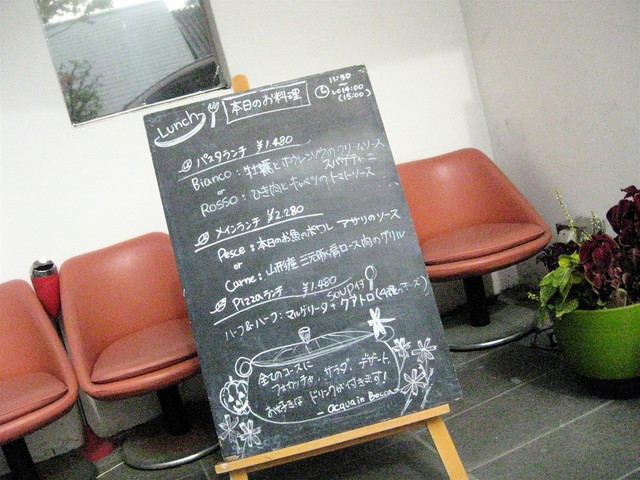 Lunch
本日のお料理
11:30
〜
L.O 14:00
(15:00)
パスタランチ ¥1.480
Bianco : 牡蠣とホウレンソウのクリームソース
スパゲティーニ
or
Rosso : ひき肉とキャベツのトマトソース
メインランチ ¥2.280
Pesce : 本日のお魚のポワレ アサリのソース
or
Carne : 山形産 三元豚肩ロース肉のグリル
Pizzaランチ ¥1.480
ハーフ&ハーフ : マルゲリータ + クアトロ(4種のチーズ)
全てのコースに
フォカッチャ、サラダ、デザート、
お好きな ドリンクが付きます!
- Acqua in Bocca -